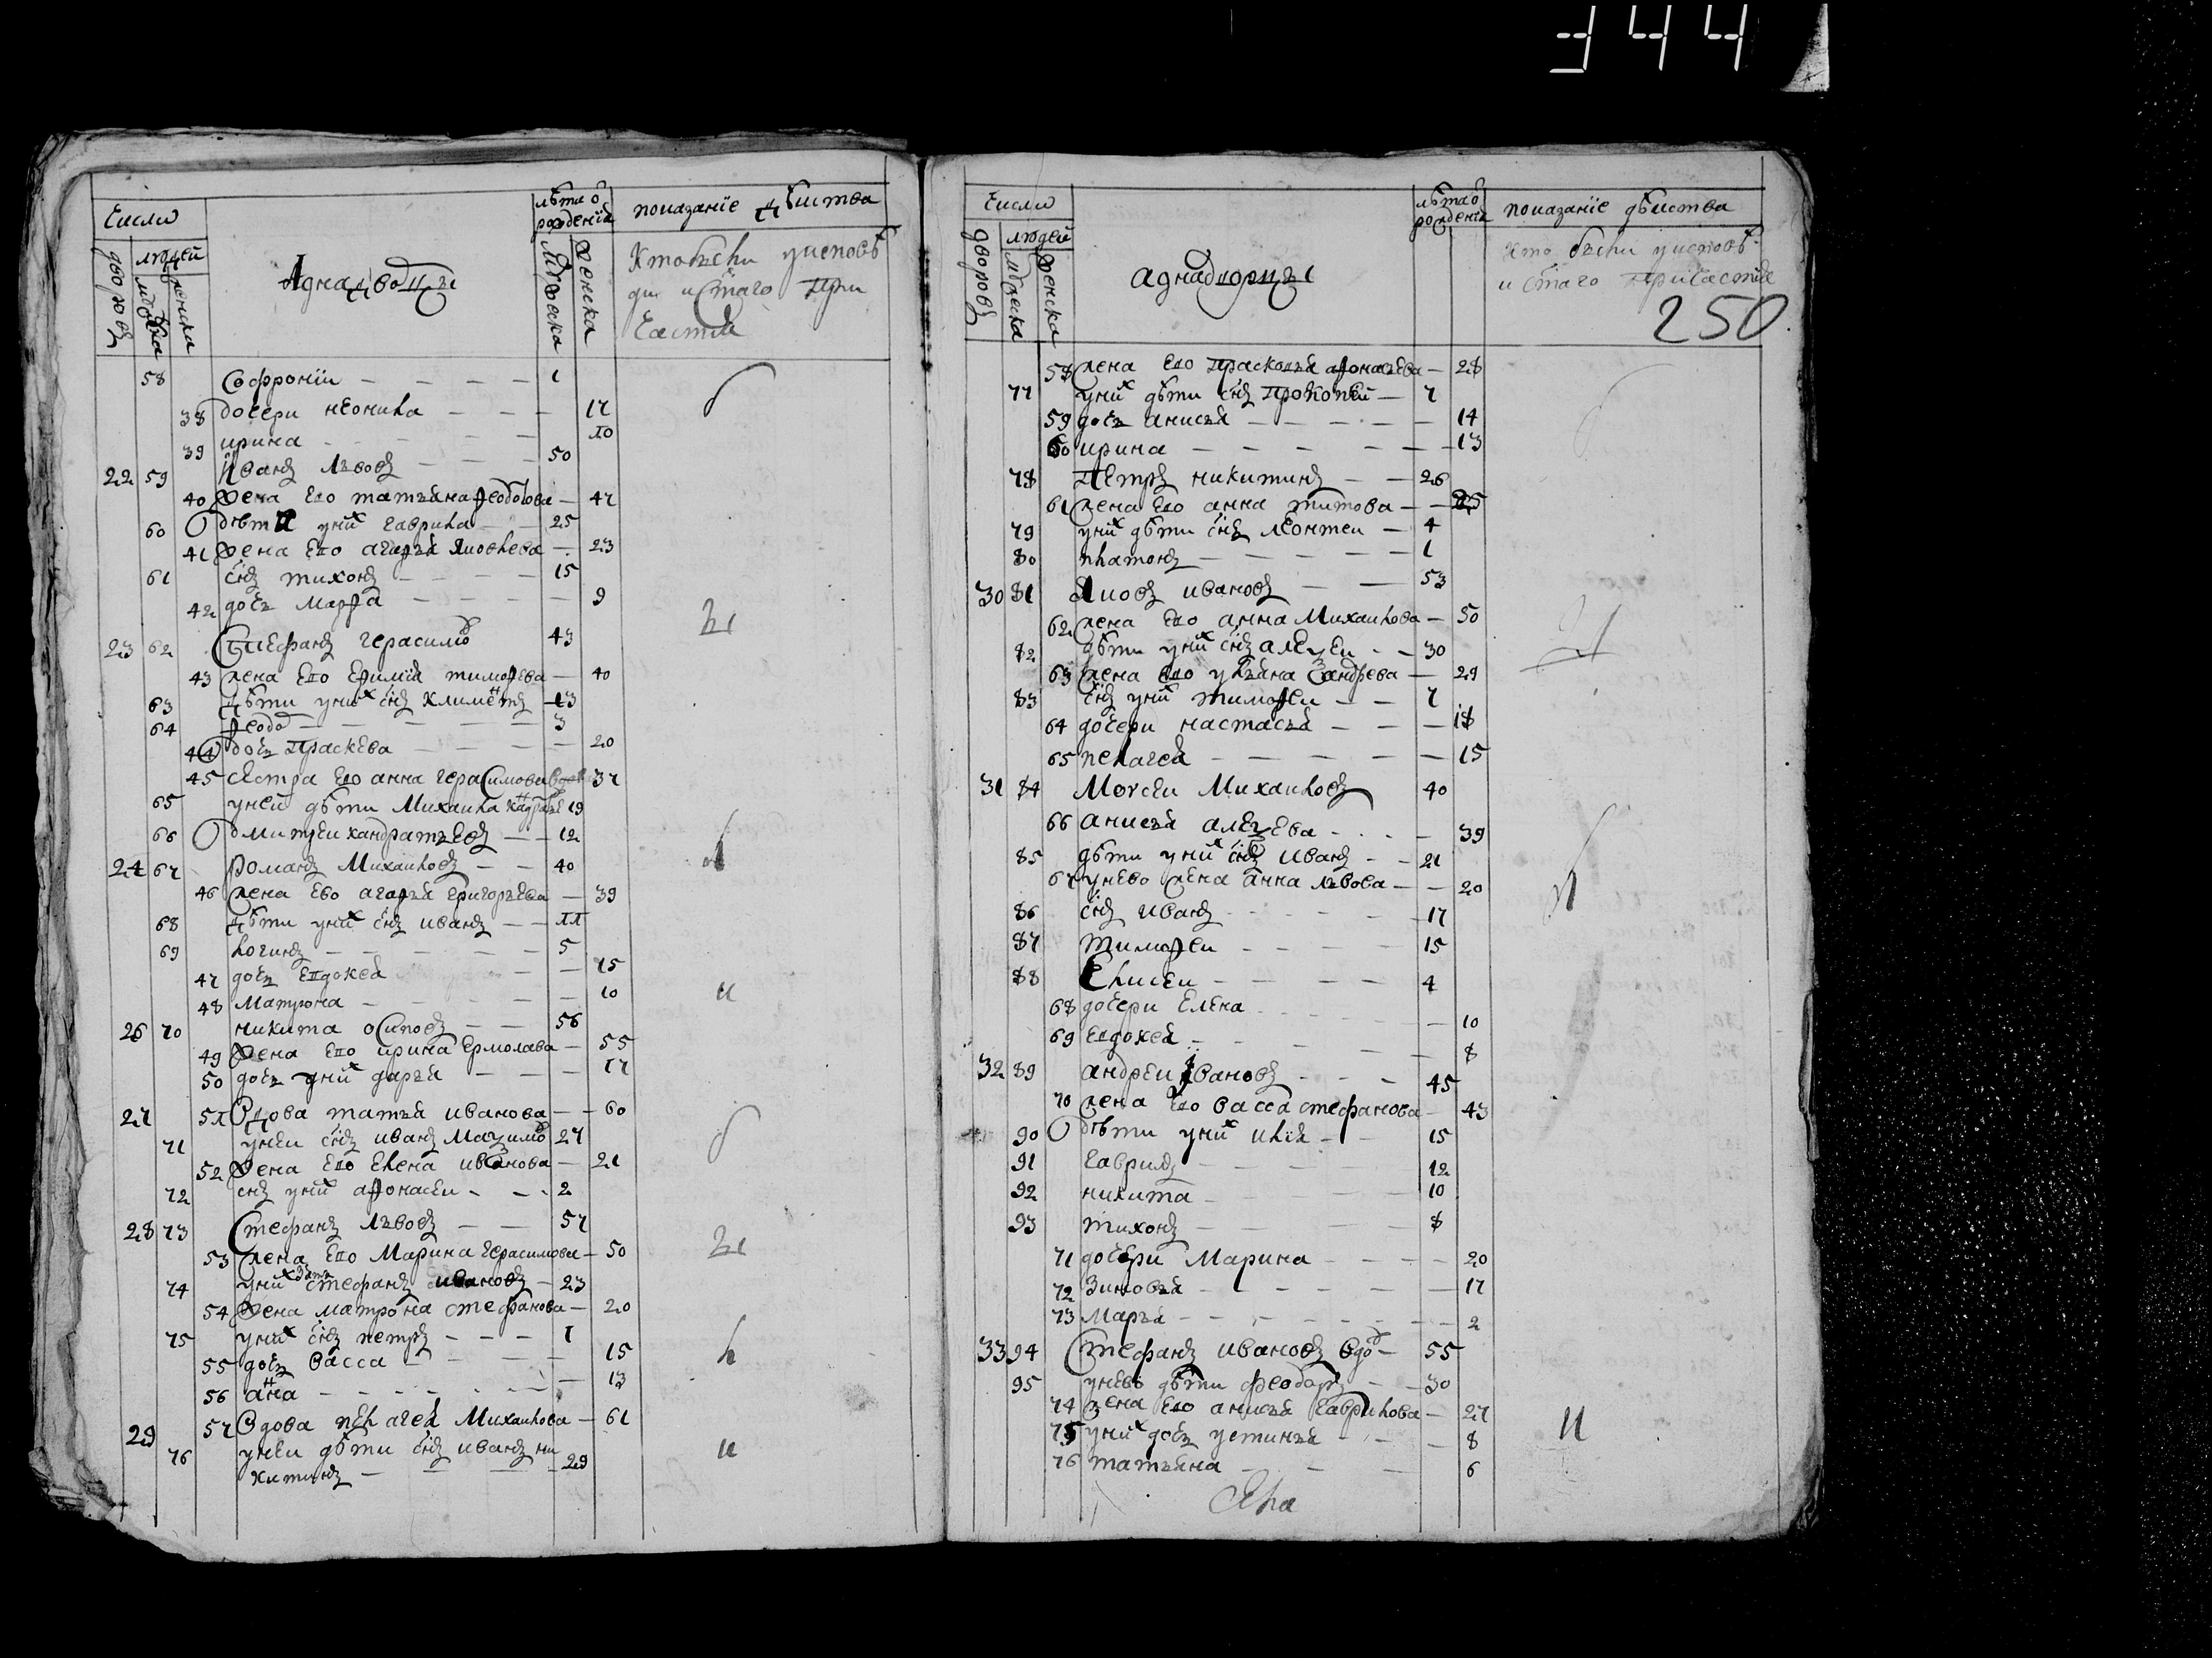 344
Числи
дворовъ
людей
мужеска
женска
Аднадворцы
лѣта о рождениї
мужеска
женска
показаниїе дѣиства
Кто былъ у исповѣ
ди и стаго при
частия
58 Софрониї — 1
38 дочери неонила — 17
39 ирина — 10
22 59 Иванъ Лвовъ — 50
40 жена ево татьяна феодотова — 47
60 дѣти у них гаврила — 25
41 жена ево агафья яковлева — 23
61 снъ тихонъ — 15
42 дочь марфа — 9
23 62 Стефанъ герасимо 43
43 жена ево ефимия тимофева — 40
63 дѣти у них снъ климентъ 13
64 феодо — 3
44 дочь праскева — 20
45 сестра ево анна герасимова 37
65 у ней дѣти михаила 19
66 дмитреи кандратьевъ — 12
24 67 романъ михаиловъ — 40
46 жена ево агафья григорьева — 39
68 дѣти у них снъ иванъ — 11
69 логинъ — 5
47 дочь евдокея — 15
48 матрона — 10
26 70 никита осиповъ — 56
49 жена ево ирина ермолава — 55
50 дочь у них дарья — 17
27 51 вдова татья иванова — 60
71 у неи снъ иванъ мазимо 27
52 жена ево елена иванова — 21
72 снъ у них афонасеи — 2
28 73 Стефанъ лвовъ — 57
53 жена ево марина герасимова — 50
74 у них зять стефанъ ивановъ — 23
54 жена матрона стефанова — 20
75 у них снъ петръ — 1
55 дочь васса — 15
56 анна — 13
29 57 вдова пелагея михаилова — 61
76 у неи дѣти снъ иванъ ни
китинъ — 29
Числи
дворовъ
людей
мужеска
женска
аднадворцы
лѣта о рождениї
показаниїе дѣиства
кто былъ у исповѣ
и стаго причастия
250
58 жена ево прасковья афонасева — 28
77 у них дѣти снъ прокопеи — 7
59 дочь анисья — 14
60 ирина — 13
78 петръ никитинъ — 26
61 жена ево анна титова — 25
79 у них дѣти снъ леонтеи — 4
80 платонъ — 1
30 81 яковъ ивановъ — 53
62 жена ево анна михаилова — 50
82 дѣти у них снъ алезеи — 30
63 жена ево ульяна — 29
83 снъ у них тимофеи — 7
64 дочери настасья — 18
65 пелагея — 15
31 84 Моисеи Михаиловъ 40
66 анисья алезева — 39
85 дѣти у них снъ иванъ — 21
67 у нево жена анна лвова — 20
86 снъ иванъ — 17
87 тимофеи — 15
88 Елисеи — 4
68 дочери елена — 10
69 евдокея — 8
32 89 андреи ивановъ — 45
70 жена ево васса стефанова — 43
90 дѣти у них илїя — 15
91 гаврилъ — 12
92 никита — 10
93 тихонъ — 8
71 дочери марина — 20
72 зиновья — 17
73 марья — 2
33 94 Стефанъ ивановъ вдо — 55
95 у нево дѣти феодоръ — 30
74 жена ево анисья гаврилова — 27
75 у них дочь устинья — 8
76 татьяна — 6